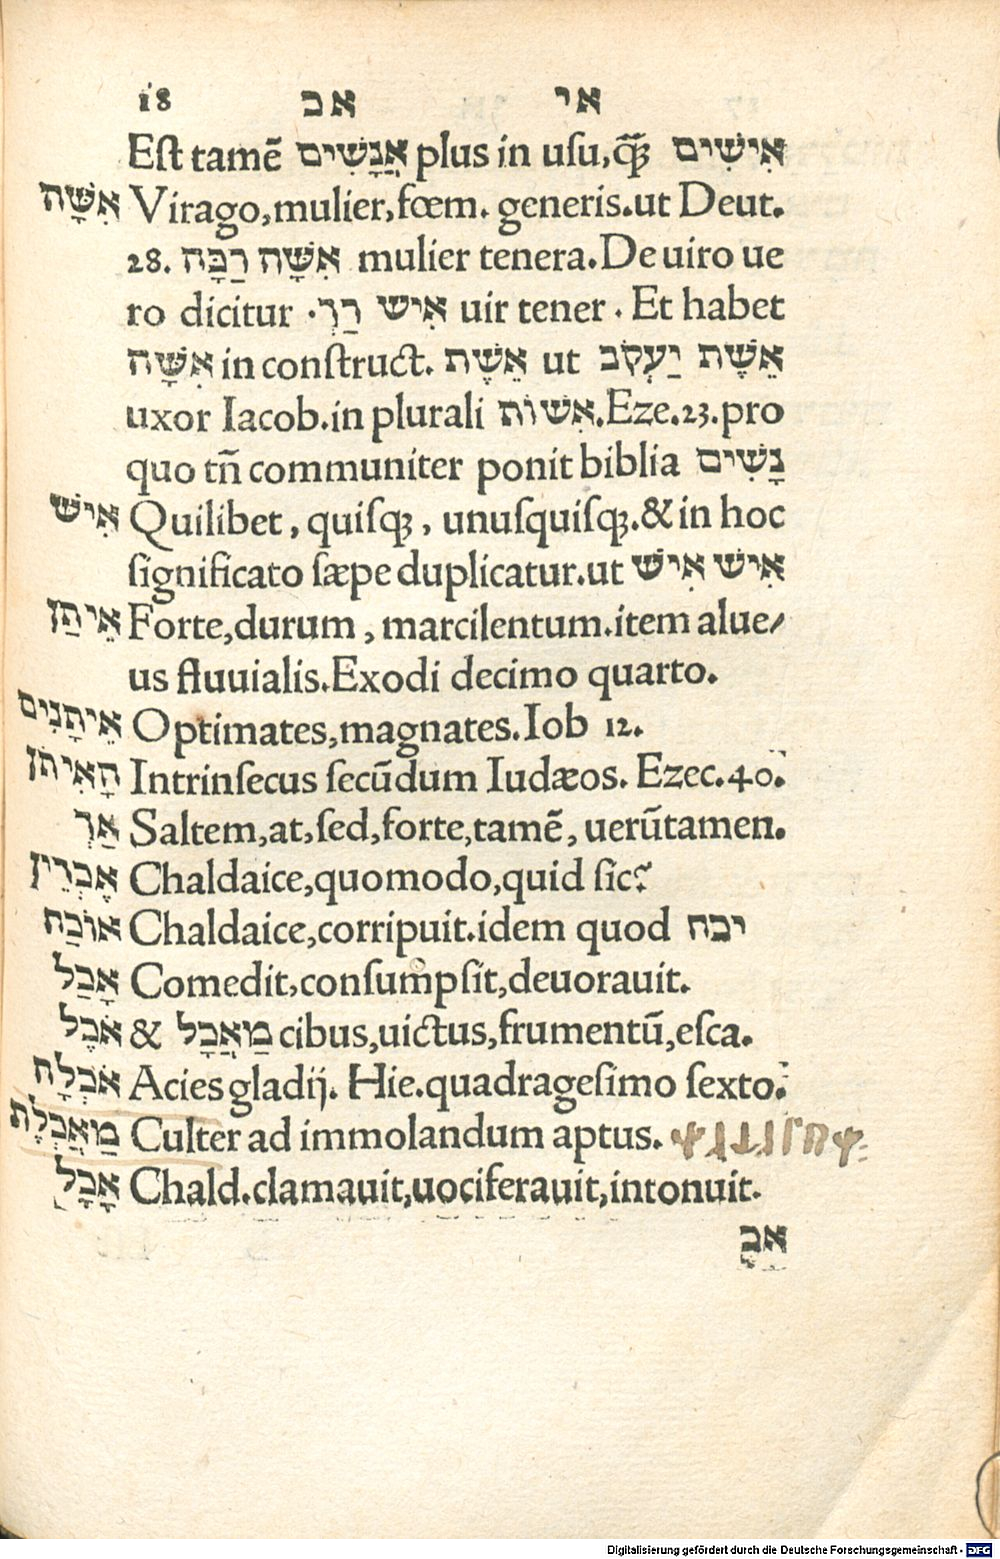 18 אכ אי
Est tamē אֲנָשִׁים plus in usu, ꝙ̃ אִישִׁים
אִשָּׁה Virago, mulier, fœm. generis. ut Deut.
28. אִשָּׁה רַכָּה mulier tenera. De uiro ue
ro dicitur אִישׁ רַךְ. uir tener. Et habet
אִשָּׁה in construct. אֵשֶׁת ut אֵשֶׁת יַעֲקֹב
uxor Iacob. in plurali אִשּׁוֹת. Eze. 23. pro
quo tñ communiter ponit biblia נָשִׁים
אִישׁ Quilibet, quisq;, unusquisq;. & in hoc
significato sæpe duplicatur. ut אִישׁ אִישׁ
אֵיתַן Forte, durum, marcilentum. item alue/
us fluuialis. Exodi decimo quarto.
אֵיתָנִים Optimates, magnates. Iob 12.
הָאִיתֹן Intrinsecus secūdum Iudæos. Ezec. 40.
אַךְ Saltem, at, sed, forte, tamē, uerūtamen.
אָכְדֵין Chaldaice, quomodo, quid sic?
אוֹכַח Chaldaice, corripuit. idem quod יכח
אָכַל Comedit, consumpsit, deuorauit.
אֹכֶל & מַאֲכָל cibus, uictus, frumentū, esca.
אֹכְלָה Acies gladij. Hie. quadragesimo sexto.
מַאֲכֶלֶת Culter ad immolandum aptus.
אָכָל Chald. clamauit, uociferauit, intonuit.
אכ
Digitalisierung gefördert durch die Deutsche Forschungsgemeinschaft - DFG